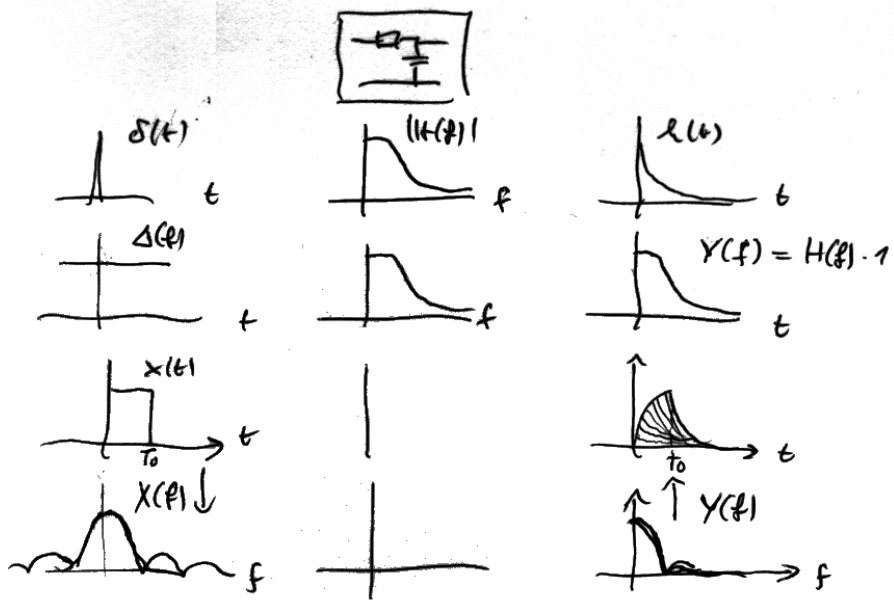 δ(t)
t
|H(f)|
f
h(t)
t
Δ(f)
t
f
Y(f) = H(f) · 1
t
x(t)
t
T₀
t₀
t
X(f)
f
Y(f)
f